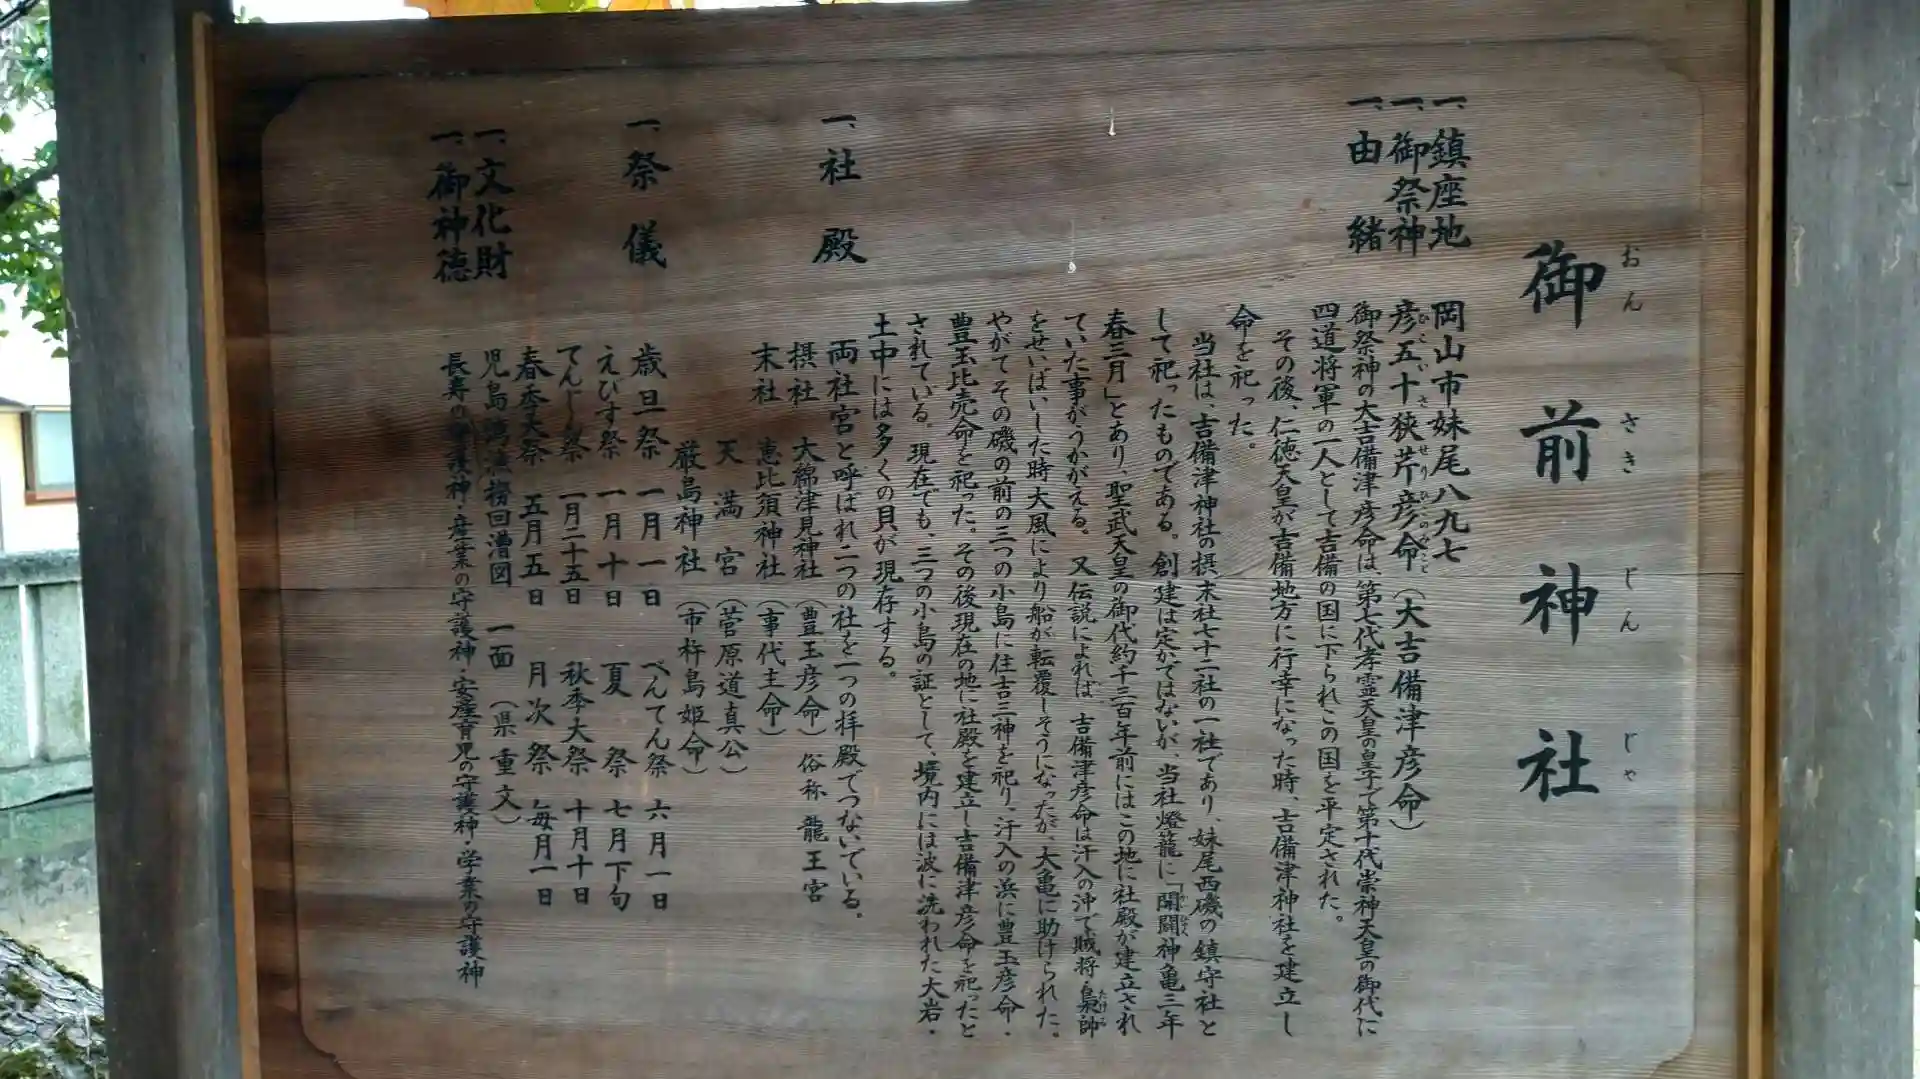 御前神社
おんさきじんじゃ
一、鎮座地 岡山市妹尾八九七
一、御祭神 彦五十狭芹彦命(大吉備津彦命)
ひこいさせりひこのみこと
一、由緒 御祭神の大吉備津彦命は、第七代孝霊天皇の皇子で第十代崇神天皇の御代に
四道将軍の一人として吉備の国に下られこの国を平定された。
その後、仁徳天皇が吉備地方に行幸になった時、吉備津神社を建立し
命を祀った。
当社は、吉備津神社の摂、末社七十二社の一社であり、妹尾西磯の鎮守社と
して祀ったものである。創建は定かではないが、当社燈籠に「開闢神亀三年
春三月」とあり、聖武天皇の御代約千三百年前にはこの地に社殿が建立され
ていた事がうかがえる。又伝説によれば、吉備津彦命は汗入の沖で賊将・梟帥
をせいばいした時大風により船が転覆しそうになったが、大亀に助けられた。
やがてその磯の前の三つの小島に住吉三神を祀り、汗入の浜に豊玉彦命・
豊玉比売命を祀った。その後現在の地に社殿を建立し吉備津彦命を祀ったと
されている。現在でも、三つの小島の証として、境内には波に洗われた大岩・
土中には多くの貝が現存する。
一、社殿 両社宮と呼ばれ二つの社を一つの拝殿でつないでいる。
摂社 大綿津見神社(豊玉彦命)俗称 龍王宮
末社 恵比須神社(事代主命)
天満宮(菅原道真公)
厳島神社(市杵島姫命)
一、祭儀 歳旦祭 一月一日 べんてん祭 六月一日
えびす祭 一月十日 夏祭 七月下旬
てんじん祭 一月二十五日 秋季大祭 十月十日
春季大祭 五月五日 月次祭 毎月一日
一、文化財 児島湾漁撈回漕図 一面(県重文)
一、御神徳 長寿の守護神・産業の守護神・安産育児の守護神・学業の守護神